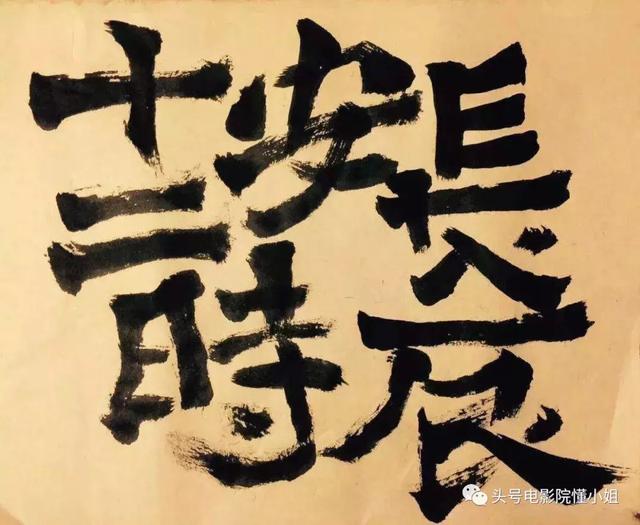 長安十二
時辰
头号电影院懂小姐